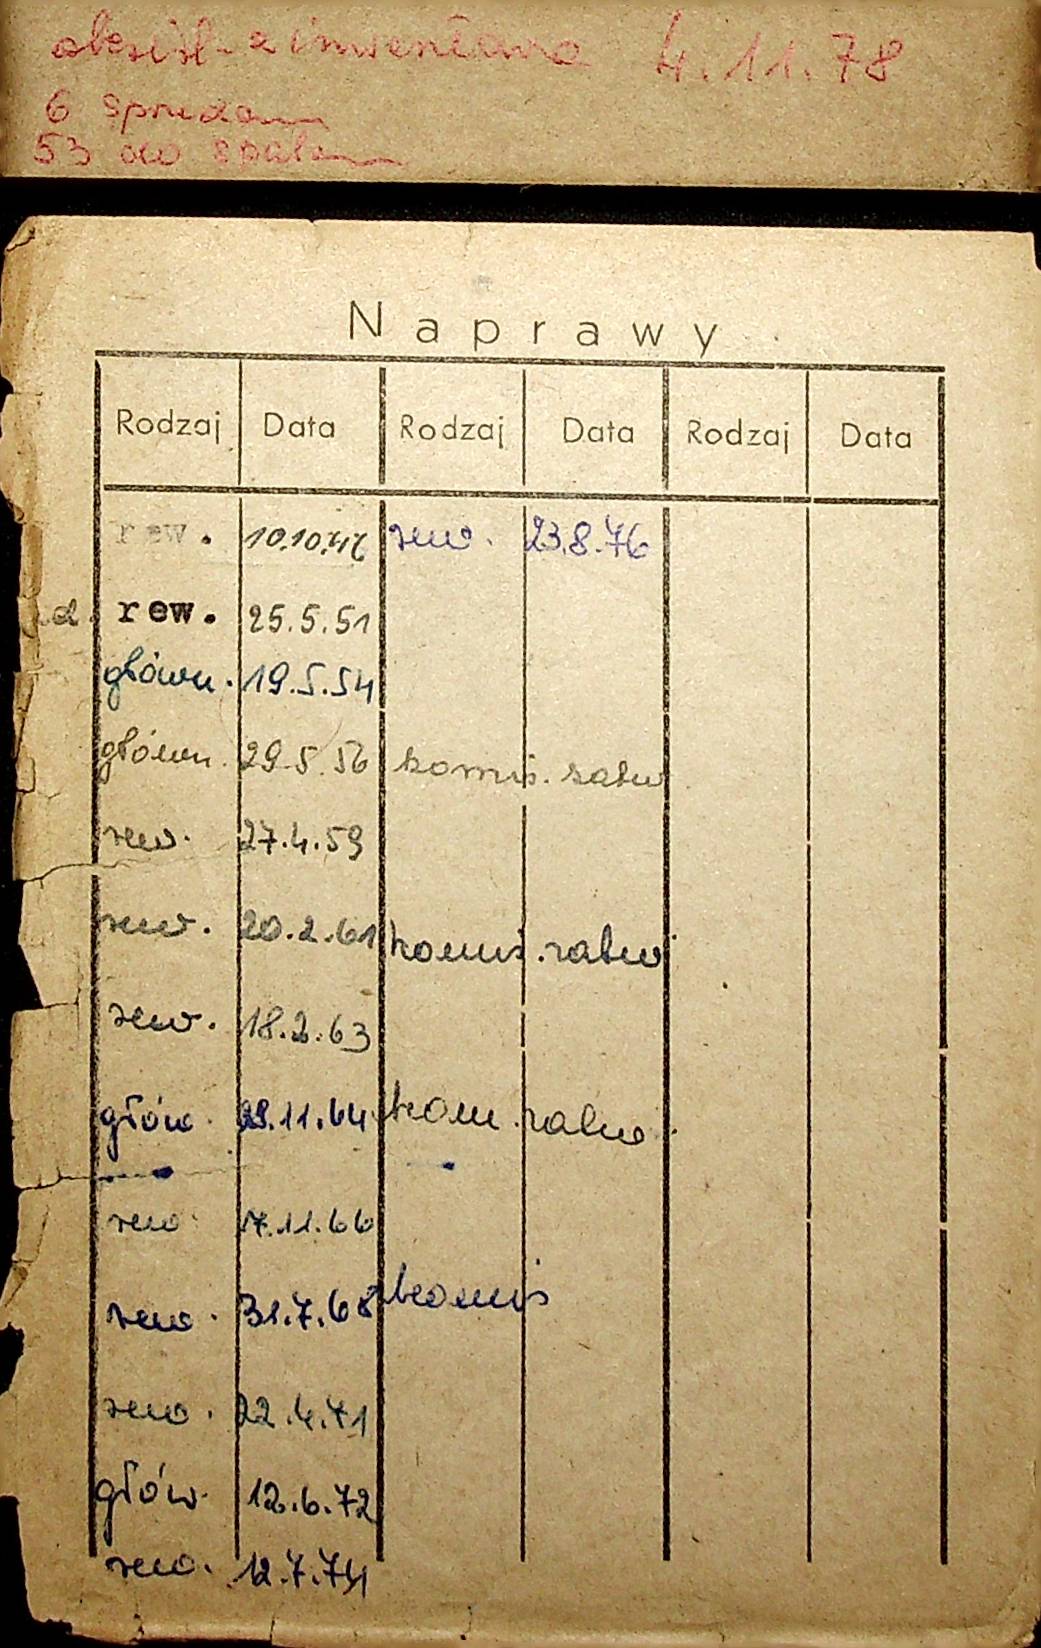 4.11.78
6
53 do
Naprawy
Rodzaj Data Rodzaj Data Rodzaj Data
rew. rew. 23.8.76
rew. 25.5.51
główn. 19.5.54
główn. 29.5.56 komis. ratw
rew. 27.4.59
rew. 20.2.61 komis. ratw
rew. 18.2.63
głów. 11.64 kom. ratw.
rew 7.11.66
rew. 31.7.68 komis
rew. 22.4.71
głów. 12.6.72
rew. 12.7.74